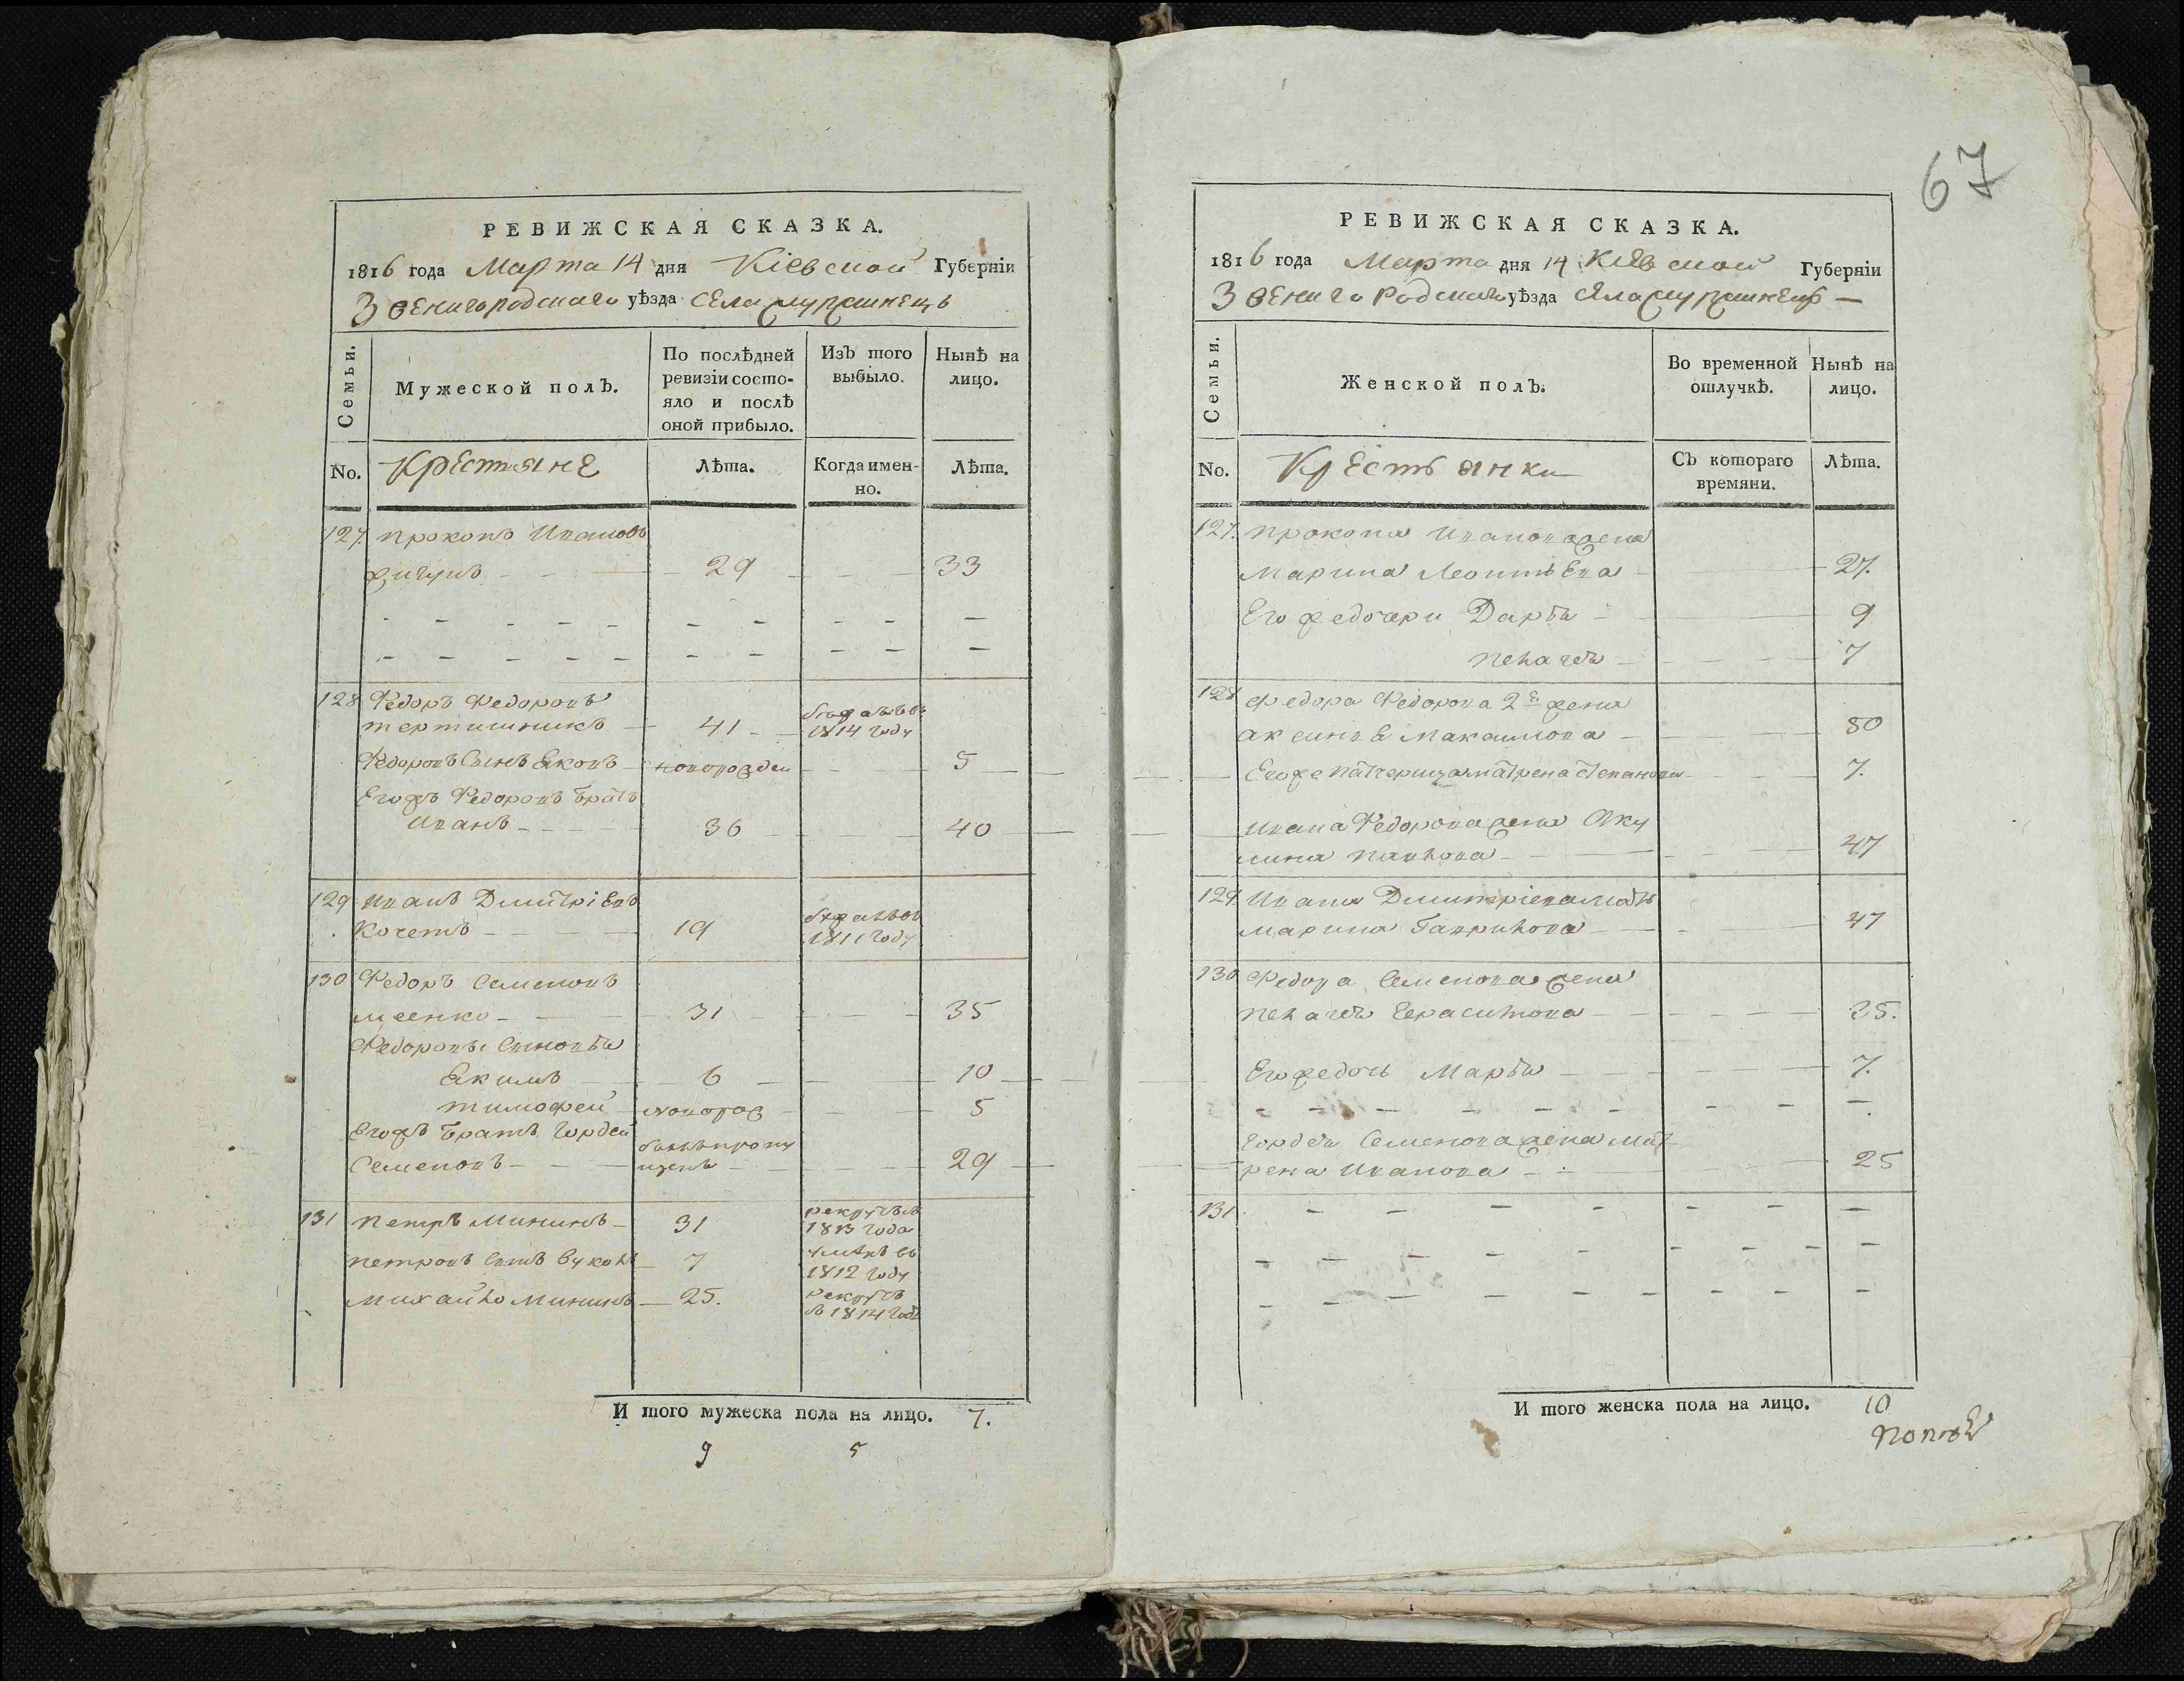 67
РЕВИЖСКАЯ СКАЗКА.
1816 года Марта 14 дня Кіевской Губерніи
Звенигородскаго уѣзда села
Семьи.
Мужеской полъ.
По послѣдней ревизіи состо-
яло и послѣ
оной прибыло.
Изъ того
выбыло.
Нынѣ на
лицо.
No.
Крестьяне
Лѣта.
Когда имен-
но.
Лѣта.
127. Прокопъ Ивановъ
29 33
128 Федоръ Федоровъ
тертишникъ 41 1814 году
Федоровъ Сынъ Яковъ 5
Егожъ Федоровъ братъ
Иванъ 36 40
129 Иванъ Дмитріевъ
Кочетъ 19 1811 году
130 Федоръ Семеновъ
31 35
Федоровы Сыновья
Якимъ 6 10
тимофей новорож 5
Егожъ братъ Гордей
Семеновъ 29
131 Петръ Мининъ 31 рекрутъ в 1813 года
Петровъ Сынъ 7 умре въ 1812 году
Михайло Мининъ 25. рекрутъ в 1814 годе
И того мужеска пола на лицо. 7.
9 5
РЕВИЖСКАЯ СКАЗКА.
1816 года Марта дня 14 Кіевской Губерніи
Звенигородскаго уѣзда села
Семьи.
Женской полъ.
Во временной
отлучкѣ.
Нынѣ на
лицо.
No.
Крестьянки
Съ котораго
времяни.
Лѣта.
127. Прокопа Иванова жена
Марина Леонтьева 27.
Его же дочери Дарья 9
Пелагея 7
128 Федора Федорова 2я жена
Аксинья Максимова 50
Егоже патчерица матрена Степанова 7.
Ивана Федорова жена Аку
лина Павлова 47
129 Ивана Дмитріева мать
марина Гаврилова 47
130 Федора Семенова жена
Пелагея Герасимова 35.
Егоже дочь Марья 7.
Гордея Семенова жена Мат
рена Иванова 25
131
И того женска пола на лицо. 10